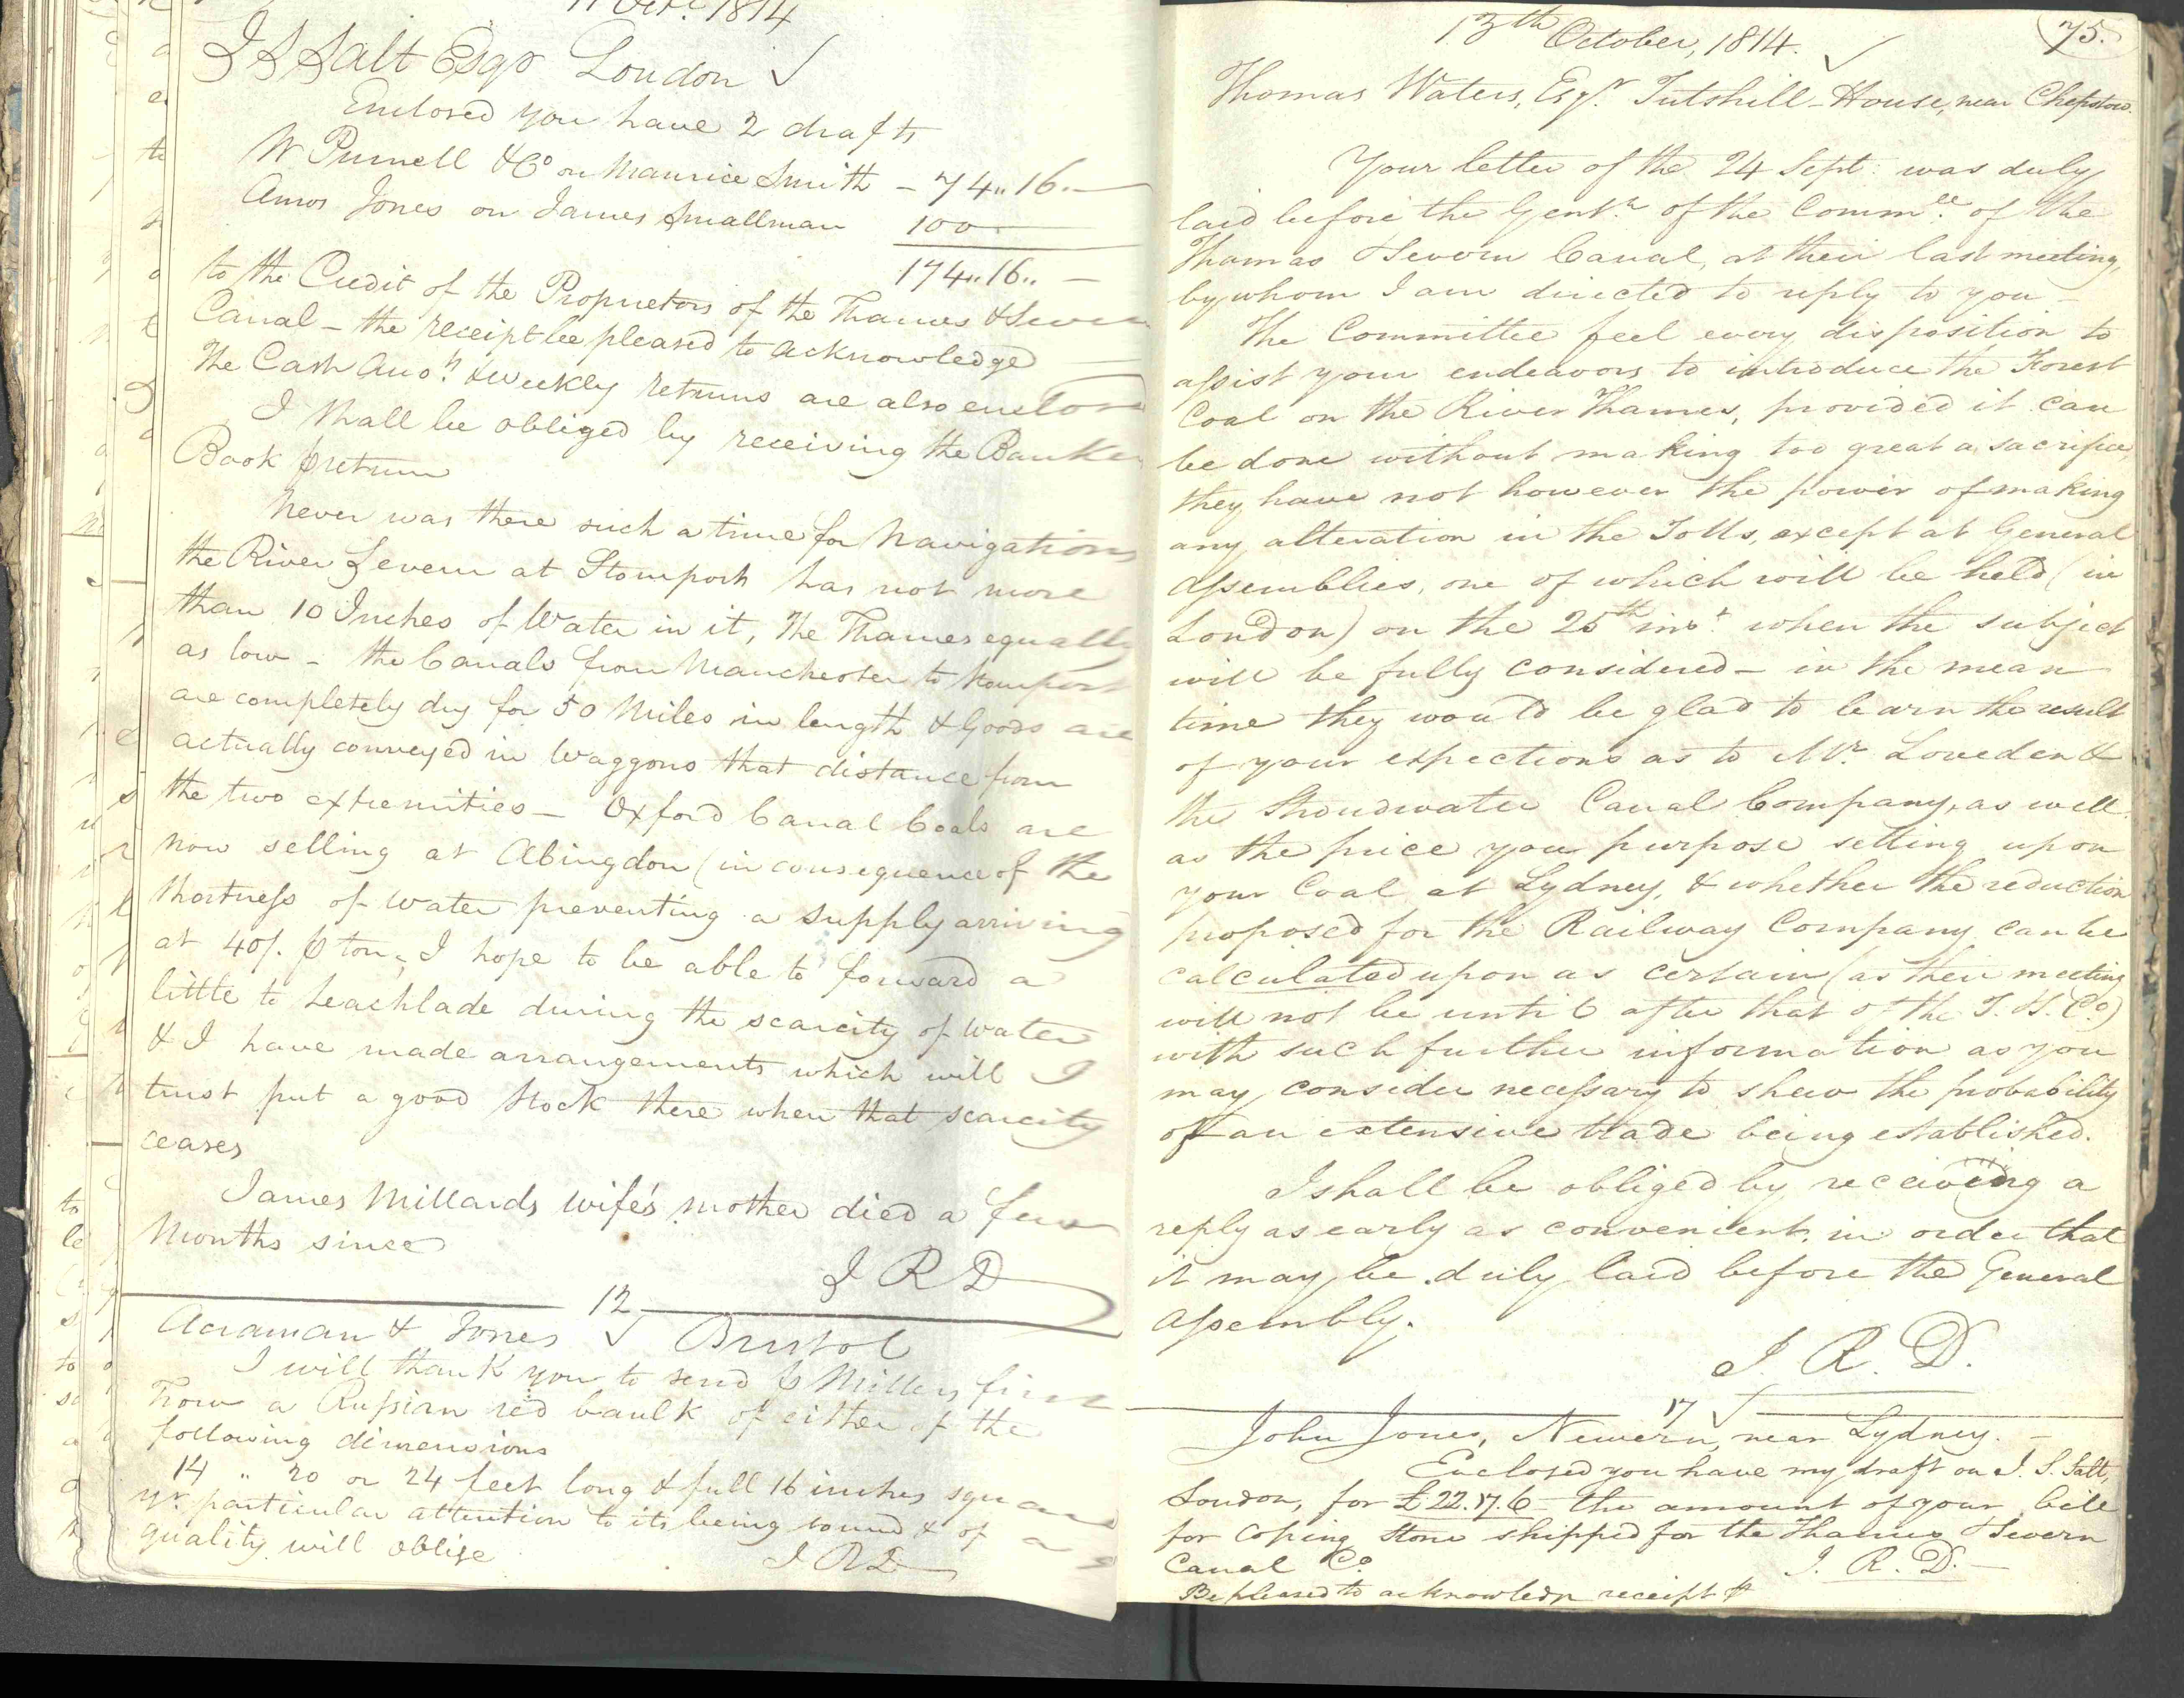 11 Oct. 1814
J S Salt Esqr London ✓
Enclosed you have 2 drafts
W Purnell & Co on Maurice Smith - 74.. 16. -
Amos Jones on James Smallman 100
174.. 16.. -
to the Credit of the Proprietors of the Thames & Severn
Canal - the receipt be pleased to acknowledge
The Cash Accot. & Weekly returns are also enclosed
I shall be obliged by receiving the Bankers
Book p return
Never was there such a time for Navigations
the River Severn at Stourport has not more
than 10 Inches of Water in it, The Thames equally
as low - the Canals from Manchester to Stourport
are completely dry for 50 Miles in length & Goods are
actually conveyed in Waggons that distance from
the two extremities - Oxford Canal Coals are
now selling at Abingdon (in consequence of the
shortness of water preventing a supply arriving
at 40/. p ton, I hope to be able to forward a
little to Leachlade during the scarcity of water
& I have made arrangements which will I
trust put a good stock there when that scarcity
ceases
James Millards wife's mother died a few
Months since
J R D
12
Acraman & Jones ✓ Bristol
I will thank you to send by Millers first
Trow a Russian red baulk of either of the
following dimensions
14 " 20 or 24 feet long & full 16 inches square
yr. particular attention to its being sound & of a
quality will oblige
J R D
75.
13th October, 1814. ✓
Thomas Waters, Esqr. Tutshill-House, near Chepstow.
Your letter of the 24 Sept: was duly
laid before the Gentn. of the Commee. of the
Thames & Severn Canal, at their last meeting,
by whom I am directed to reply to you -
The Committee feel every disposition to
assist your endeavors to introduce the Forest
Coal on the River Thames, provided it can
be done without making too great a sacrifice,
they have not however the power of making
any alteration in the Tolls, except at General
Assemblies, one of which will be held (in
London) on the 25th inst. when the subject
will be fully considered - in the mean
time they would be glad to learn the result
of your expections as to Mr. Loveden &
the Stroudwater Canal Company, as well
as the price you purpose setting upon
your Coal at Lydney, & whether the reduction
proposed for the Railway Company can be
calculated upon as certain (as their meeting
will not be until after that of the T. & S. Co.)
with such further information as you
may consider necessary to shew the probability
of an extensive trade being established.
I shall be obliged by receiving a
reply as early as convenient, in order that
it may be duly laid before the General
Assembly.
J. R. D.
17 ✓
John Jones, Newern, near Lydney. -
Enclosed you have my draft on J. S. Salt,
London, for £22.17.6 - the amount of your bill
for Coping Stone shipped for the Thames & Severn
Canal Co.
J. R. D. -
Be pleased to acknowledge receipt